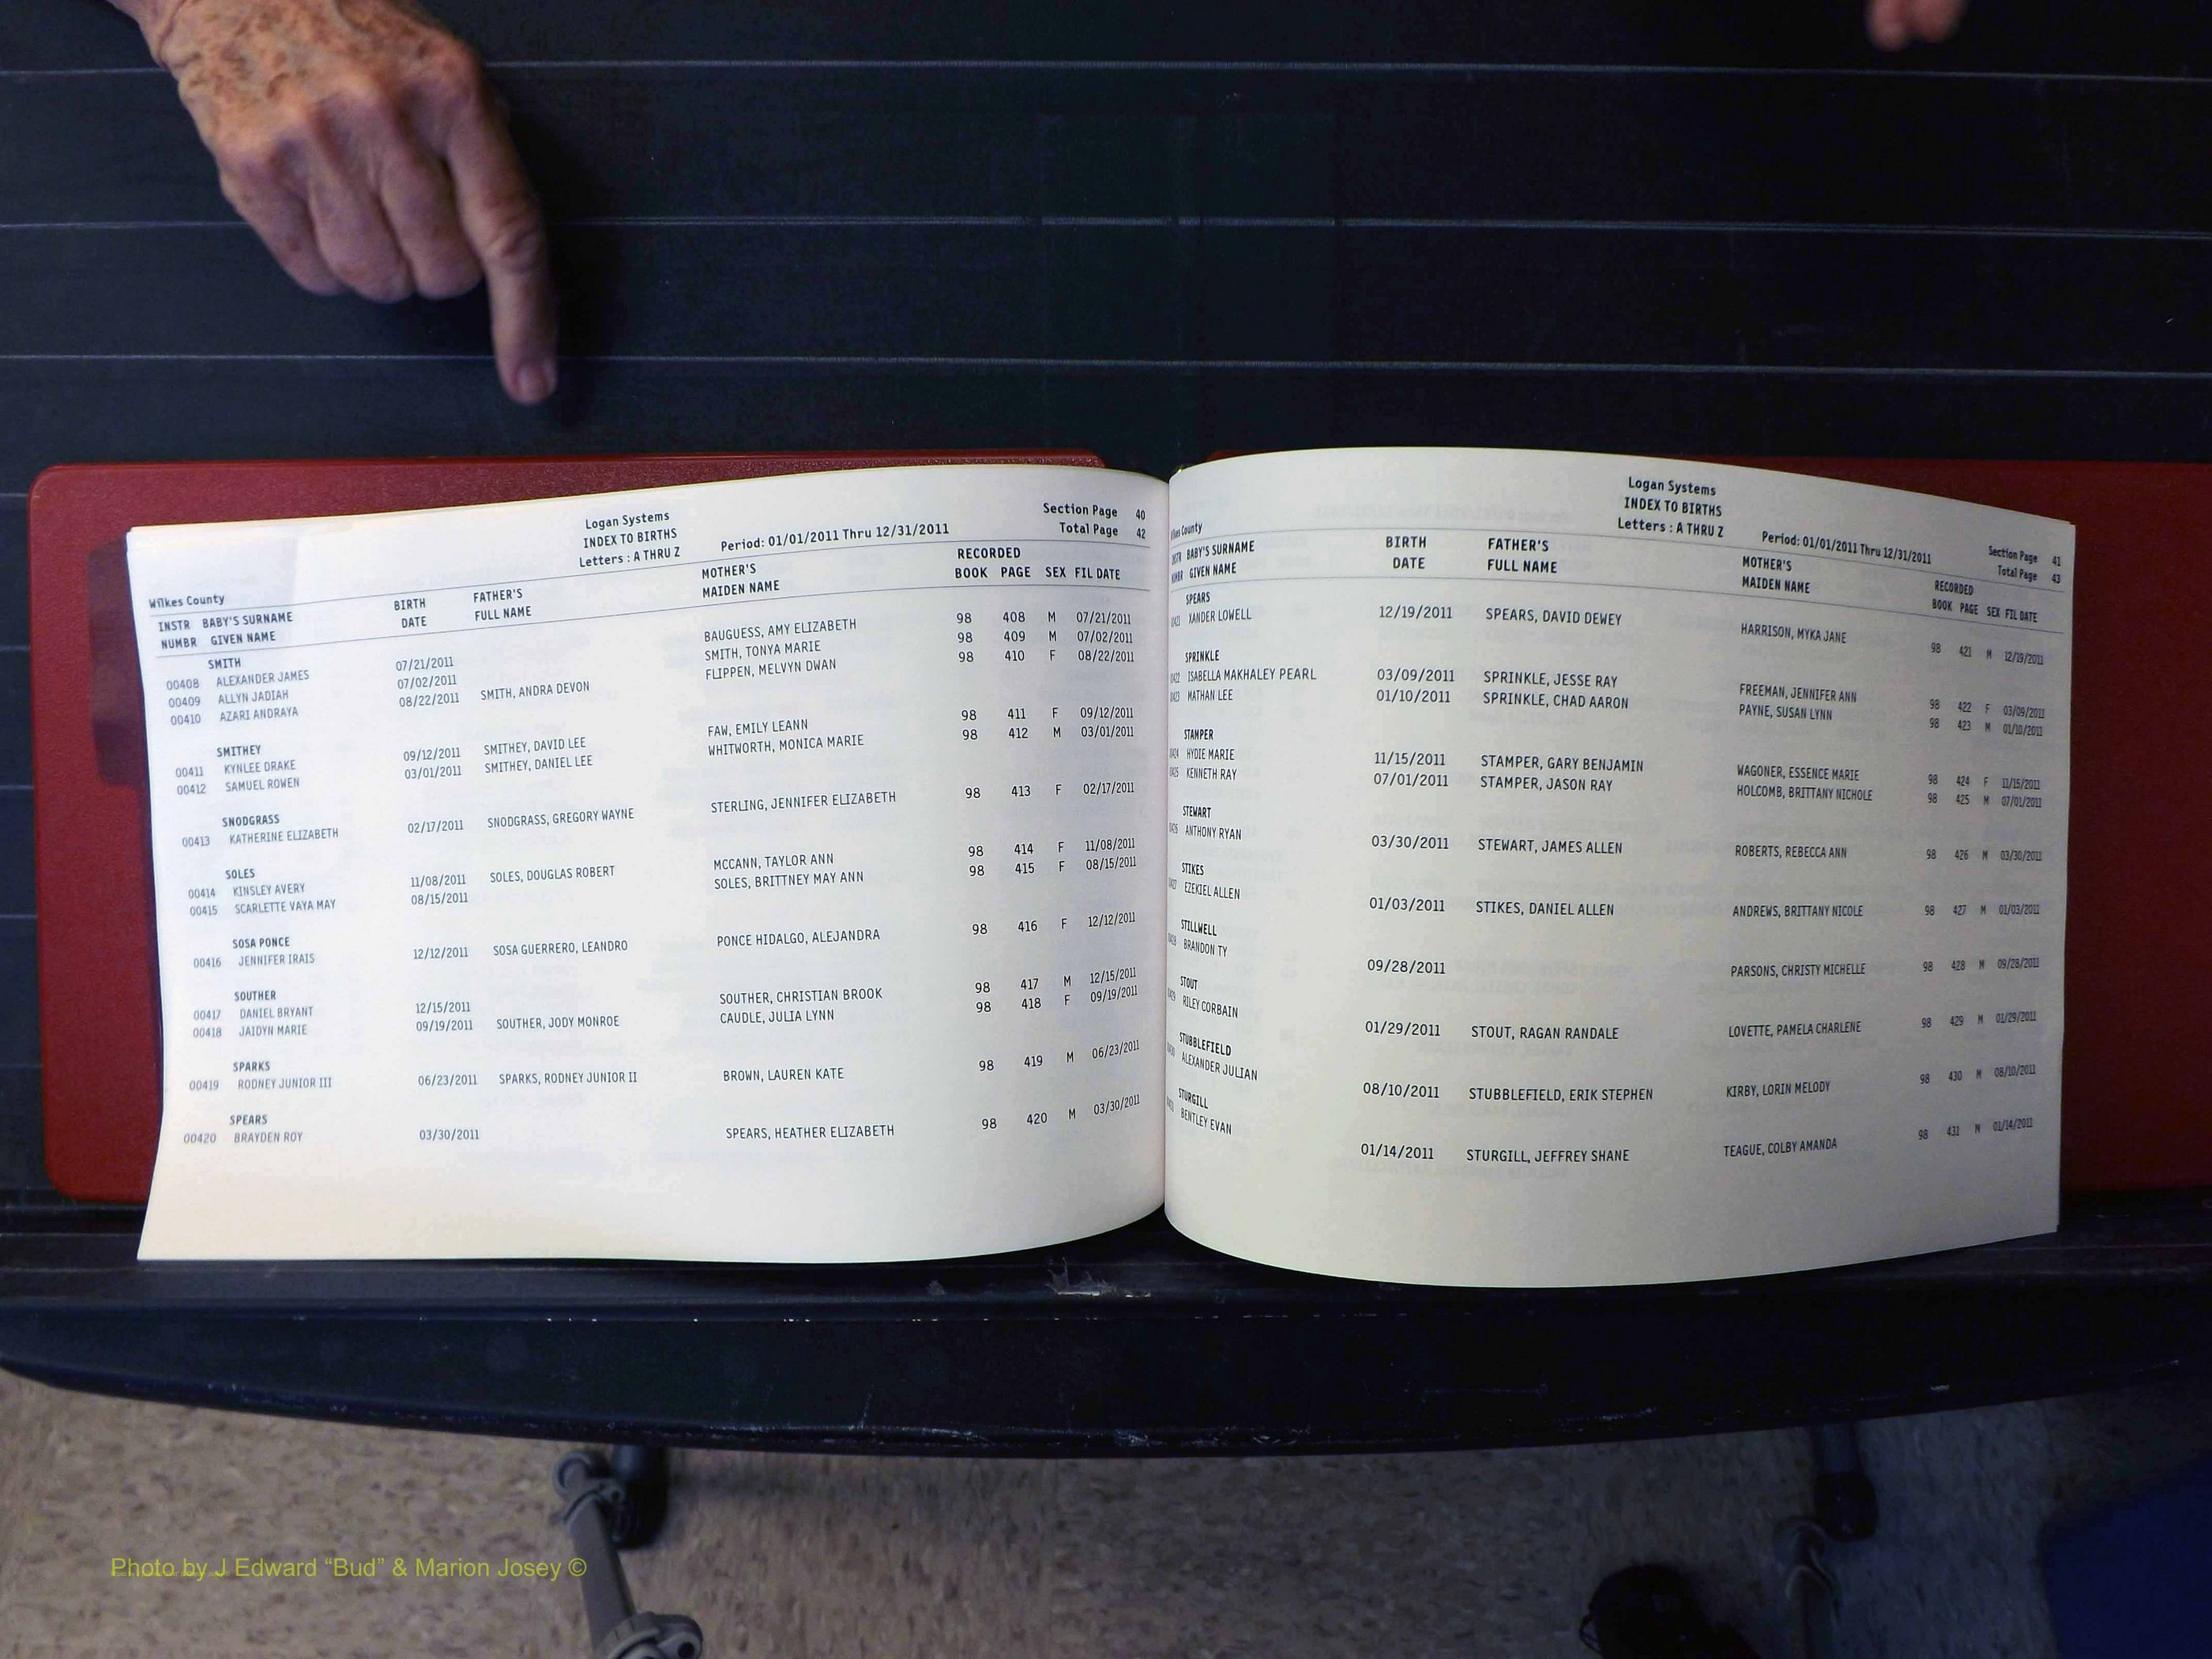 Logan Systems
INDEX TO BIRTHS
Letters : A THRU Z
Period: 01/01/2011 Thru 12/31/2011
Section Page 40
Total Page 42
Wilkes County
INSTR BABY'S SURNAME BIRTH FATHER'S MOTHER'S RECORDED
NUMBR GIVEN NAME DATE FULL NAME MAIDEN NAME BOOK PAGE SEX FIL DATE
SMITH
00408 ALEXANDER JAMES 07/21/2011 BAUGUESS, AMY ELIZABETH 98 408 M 07/21/2011
00409 ALLYN JADIAH 07/02/2011 SMITH, TONYA MARIE 98 409 M 07/02/2011
00410 AZARI ANDRAYA 08/22/2011 SMITH, ANDRA DEVON FLIPPEN, MELVYN DWAN 98 410 F 08/22/2011
SMITHEY
00411 KYNLEE DRAKE 09/12/2011 SMITHEY, DAVID LEE FAW, EMILY LEANN 98 411 F 09/12/2011
00412 SAMUEL ROWEN 03/01/2011 SMITHEY, DANIEL LEE WHITWORTH, MONICA MARIE 98 412 M 03/01/2011
SNODGRASS
00413 KATHERINE ELIZABETH 02/17/2011 SNODGRASS, GREGORY WAYNE STERLING, JENNIFER ELIZABETH 98 413 F 02/17/2011
SOLES
00414 KINSLEY AVERY 11/08/2011 SOLES, DOUGLAS ROBERT MCCANN, TAYLOR ANN 98 414 F 11/08/2011
00415 SCARLETTE VAYA MAY 08/15/2011 SOLES, BRITTNEY MAY ANN 98 415 F 08/15/2011
SOSA PONCE
00416 JENNIFER IRAIS 12/12/2011 SOSA GUERRERO, LEANDRO PONCE HIDALGO, ALEJANDRA 98 416 F 12/12/2011
SOUTHER
00417 DANIEL BRYANT 12/15/2011 SOUTHER, CHRISTIAN BROOK 98 417 M 12/15/2011
00418 JAIDYN MARIE 09/19/2011 SOUTHER, JODY MONROE CAUDLE, JULIA LYNN 98 418 F 09/19/2011
SPARKS
00419 RODNEY JUNIOR III 06/23/2011 SPARKS, RODNEY JUNIOR II BROWN, LAUREN KATE 98 419 M 06/23/2011
SPEARS
00420 BRAYDEN ROY 03/30/2011 SPEARS, HEATHER ELIZABETH 98 420 M 03/30/2011
Logan Systems
INDEX TO BIRTHS
Letters : A THRU Z
Period: 01/01/2011 Thru 12/31/2011
Section Page 41
Total Page 43
County
BABY'S SURNAME BIRTH FATHER'S MOTHER'S RECORDED
GIVEN NAME DATE FULL NAME MAIDEN NAME BOOK PAGE SEX FIL DATE
SPEARS
XANDER LOWELL 12/19/2011 SPEARS, DAVID DEWEY HARRISON, MYKA JANE 98 421 M 12/19/2011
SPRINKLE
ISABELLA MAKHALEY PEARL 03/09/2011 SPRINKLE, JESSE RAY FREEMAN, JENNIFER ANN 98 422 F 03/09/2011
NATHAN LEE 01/10/2011 SPRINKLE, CHAD AARON PAYNE, SUSAN LYNN 98 423 M 01/10/2011
STAMPER
HYDIE MARIE 11/15/2011 STAMPER, GARY BENJAMIN WAGONER, ESSENCE MARIE 98 424 F 11/15/2011
KENNETH RAY 07/01/2011 STAMPER, JASON RAY HOLCOMB, BRITTANY NICHOLE 98 425 M 07/01/2011
STEWART
ANTHONY RYAN 03/30/2011 STEWART, JAMES ALLEN ROBERTS, REBECCA ANN 98 426 M 03/30/2011
STIKES
EZEKIEL ALLEN 01/03/2011 STIKES, DANIEL ALLEN ANDREWS, BRITTANY NICOLE 98 427 M 01/03/2011
STILLWELL
BRANDON TY 09/28/2011 PARSONS, CHRISTY MICHELLE 98 428 M 09/28/2011
STOUT
RILEY CORBAIN 01/29/2011 STOUT, RAGAN RANDALE LOVETTE, PAMELA CHARLENE 98 429 M 01/29/2011
STUBBLEFIELD
ALEXANDER JULIAN 08/10/2011 STUBBLEFIELD, ERIK STEPHEN KIRBY, LORIN MELODY 98 430 M 08/10/2011
STURGILL
BENTLEY EVAN 01/14/2011 STURGILL, JEFFREY SHANE TEAGUE, COLBY AMANDA 98 431 M 01/14/2011
Photo by J Edward “Bud” & Marion Josey ©